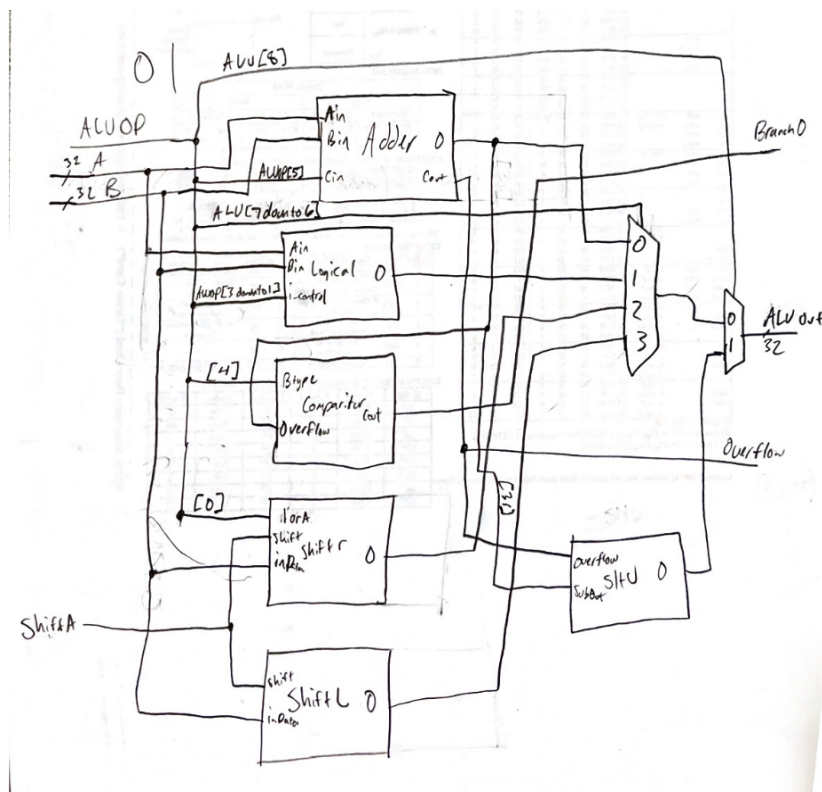 01
ALU[8]
ALUOP
32 A
32 B
Ain
Bin
Adder
O
Cin
Cout
ALUOP[5]
ALU[7downto6]
Branch O
Ain
Bin Logical O
i-control
ALUOP[3downto1]
0
1
2
3
0
1
ALU Out
32
[4]
Btype
Comparitor
Cout
Overflow
Overflow
[31]
[0]
lorA
Shift
Shift r
O
inData
Overflow
SltU O
SubOut
ShiftA
Shift
Shift L O
inData